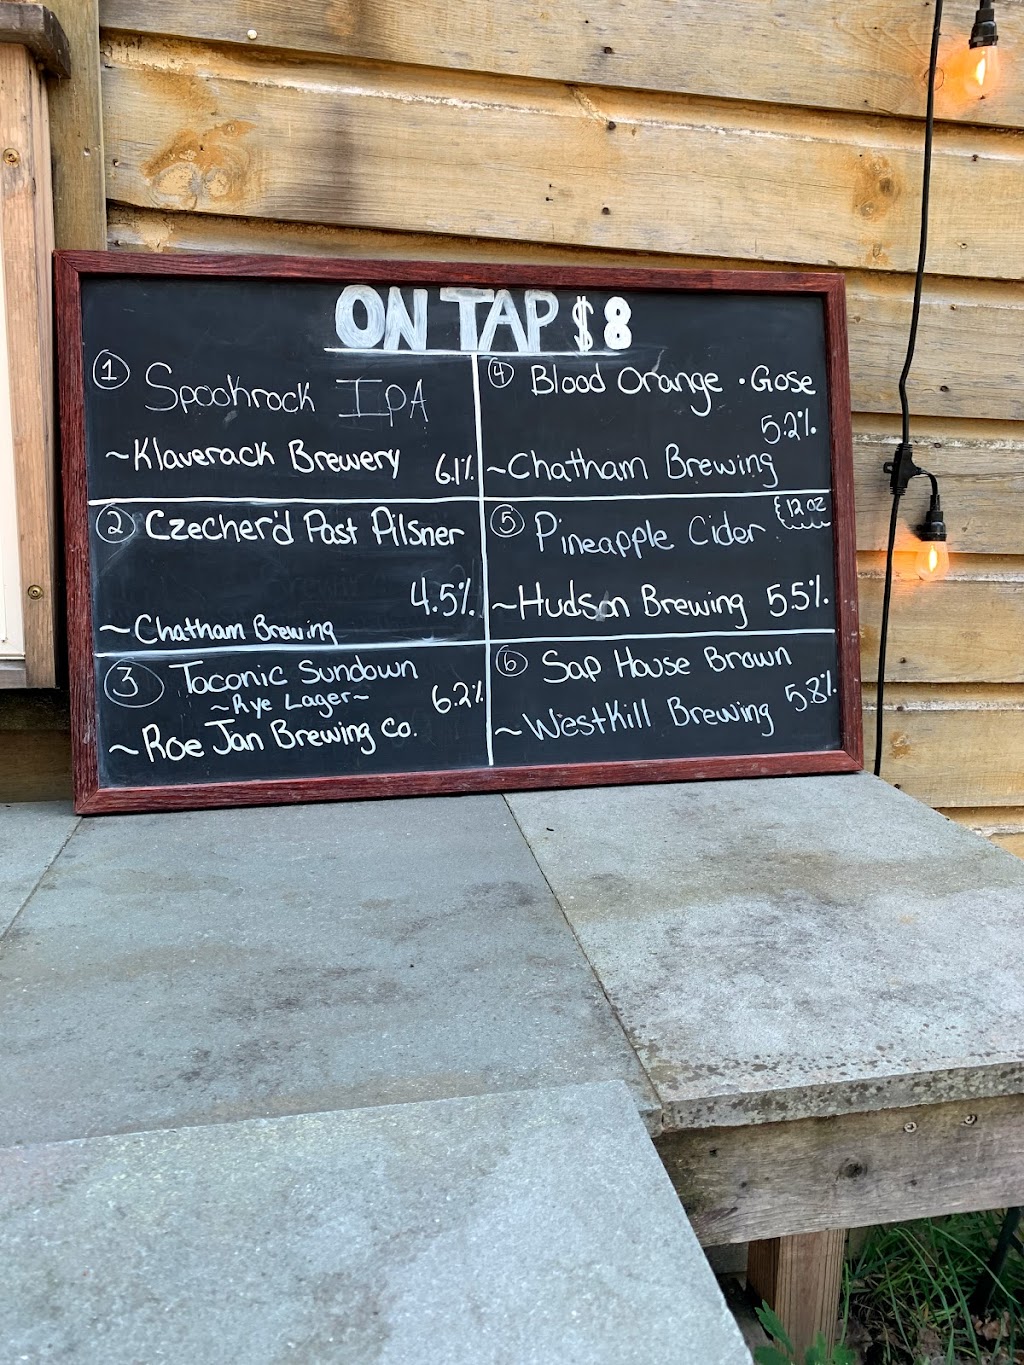 ON TAP $8
1 Spookrock IPA
~Klaverack Brewery 6.1%
2 Czecher'd Past Pilsner
4.5%
~Chatham Brewing
3 Taconic Sundown
~Rye Lager~ 6.2%
~Roe Jan Brewing Co.
4 Blood Orange • Gose
5.2%
~Chatham Brewing
5 Pineapple Cider 12 oz
~Hudson Brewing 5.5%
6 Sap House Brown
~WestKill Brewing 5.8%